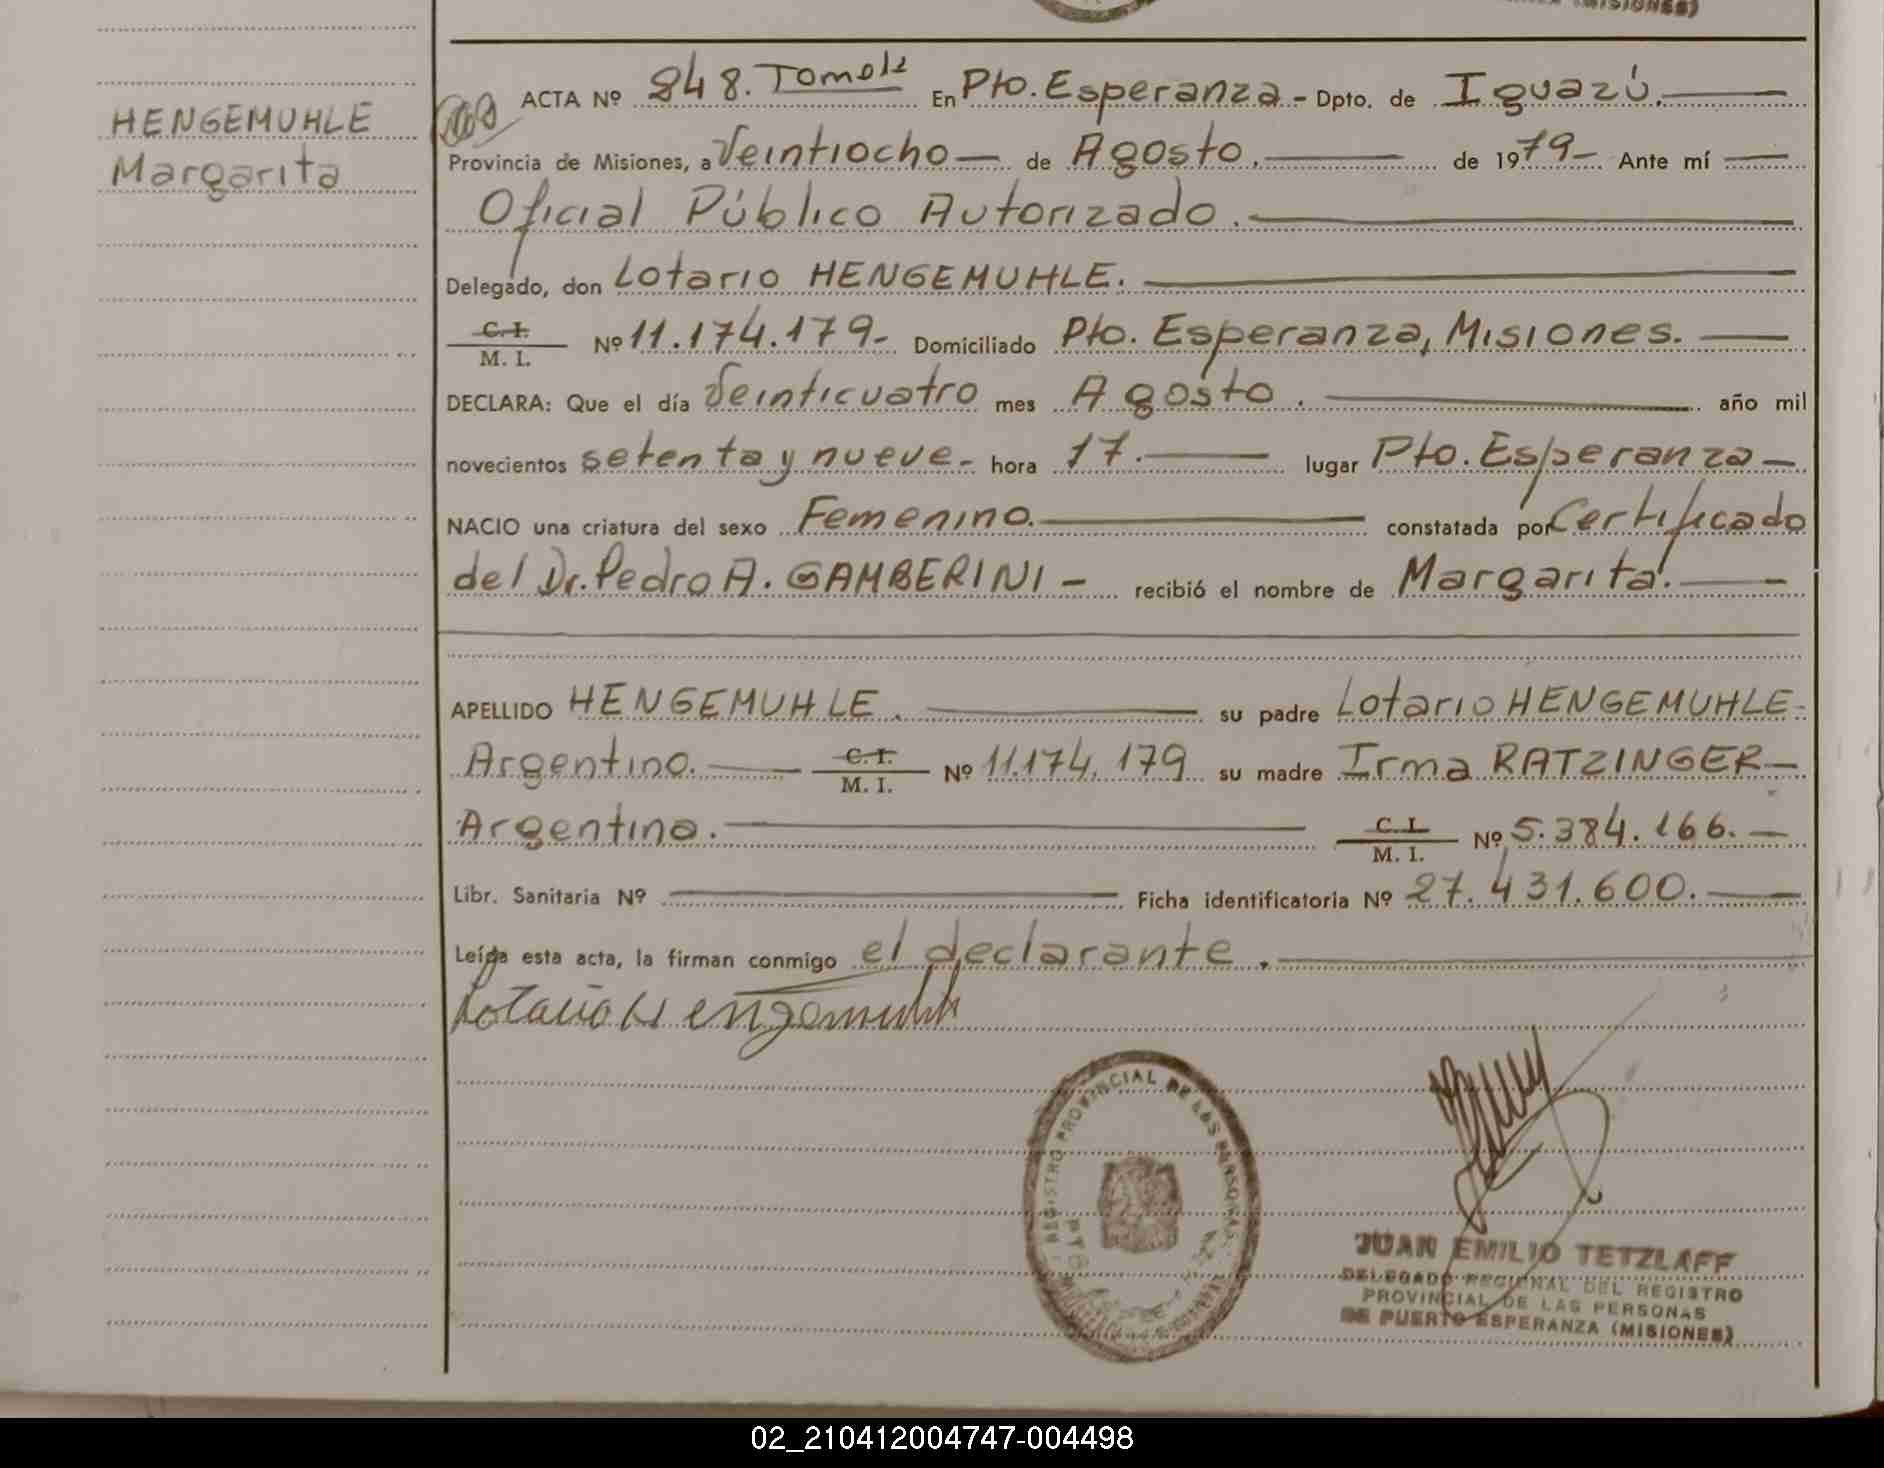 (MISIONES)
HENGEMUHLE
Margarita
ACTA Nº 848. Tomo En Pto. Esperanza - Dpto. de Iguazú.
Provincia de Misiones, a Veintiocho de Agosto. de 1979- Ante mí
Oficial Público Autorizado.
Delegado, don Lotario HENGEMUHLE.
C. I.
M. I. Nº 11.174.179- Domiciliado Pto. Esperanza, Misiones.
DECLARA: Que el día Veinticuatro mes Agosto. año mil
novecientos setenta y nueve- hora 17. lugar Pto. Esperanza-
NACIO una criatura del sexo Femenino. constatada por Certificado
del Dr. Pedro A. GAMBERINI - recibió el nombre de Margarita.
APELLIDO HENGEMUHLE. su padre Lotario HENGEMUHLE-
Argentino. C. I.
M. I. Nº 11.174.179 su madre Irma RATZINGER-
Argentina. C. I.
M. I. Nº 5.384.166.-
Libr. Sanitaria Nº Ficha identificatoria Nº 27.431.600.
Leída esta acta, la firman conmigo el declarante.
Lotario Hengemuhle
REGISTRO PROVINCIAL DE LAS PERSONAS
JUAN EMILIO TETZLAFF
DELEGADO REGIONAL DEL REGISTRO
PROVINCIAL DE LAS PERSONAS
DE PUERTO ESPERANZA (MISIONES)
02_210412004747-004498